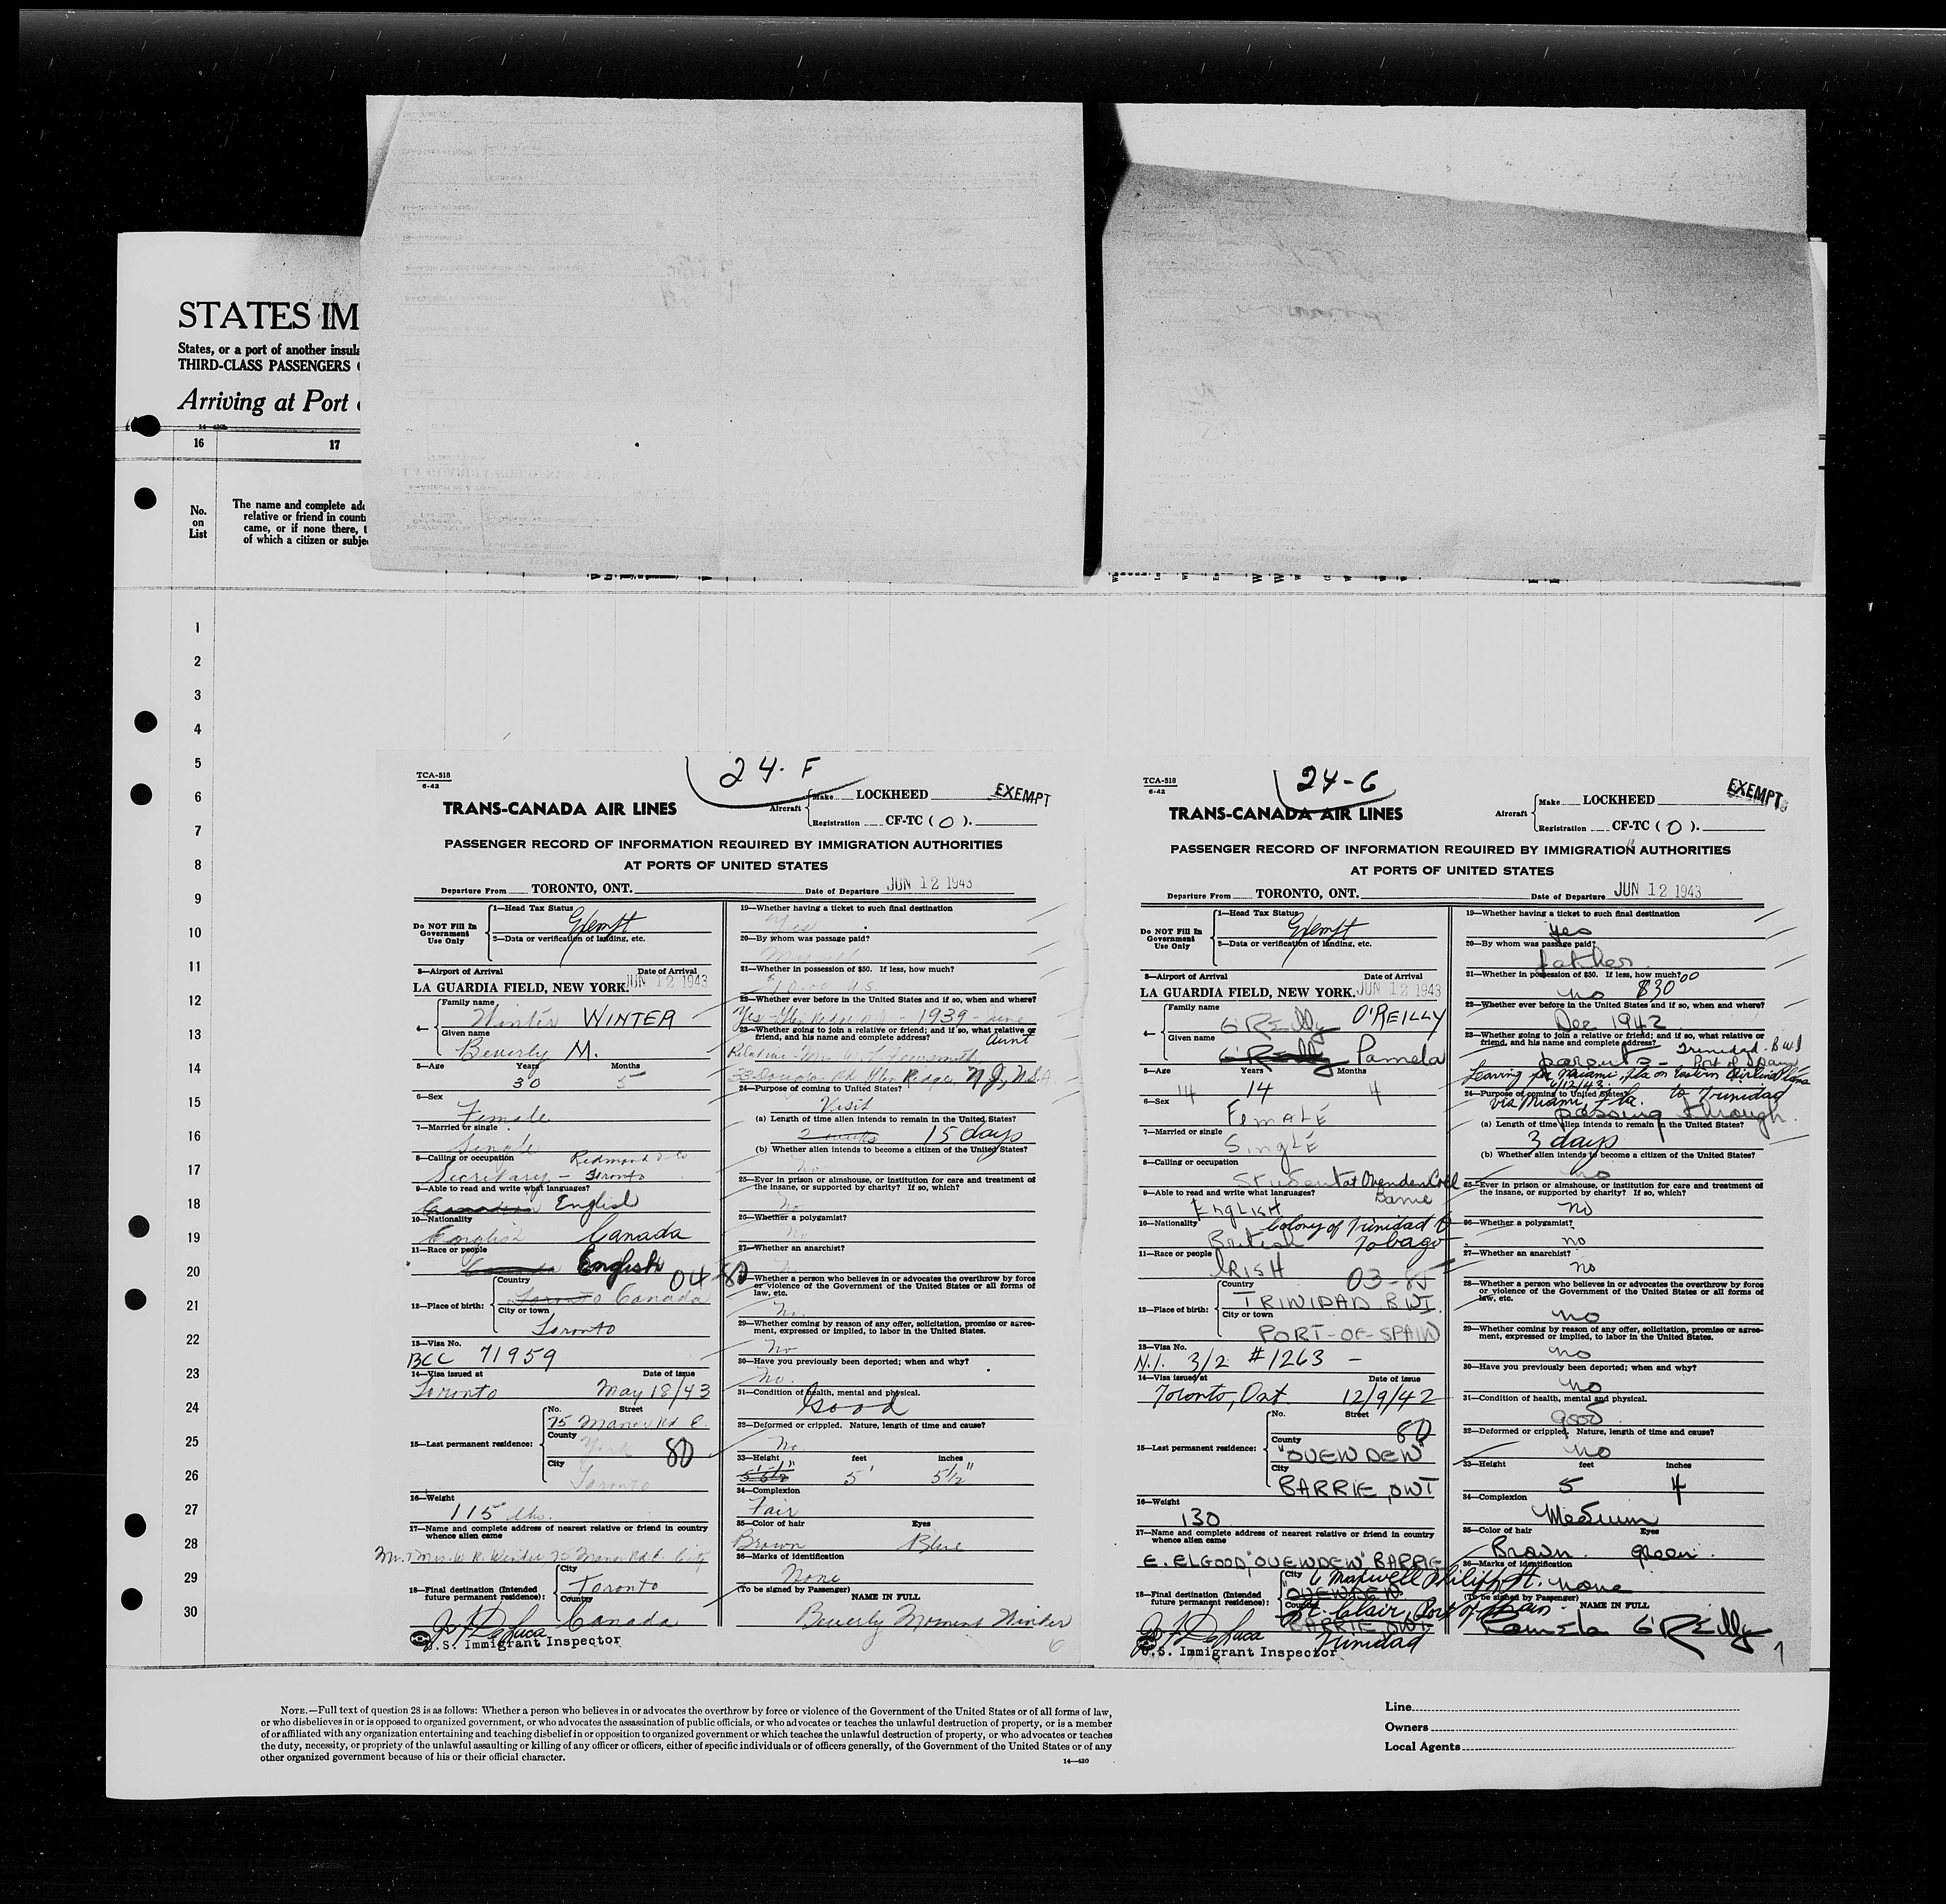 STATES IM
States, or a port of another insula
THIRD-CLASS PASSENGERS
Arriving at Port
16 17
No. on List
The name and complete add
relative or friend in count
came, or if none there, t
of which a citizen or subje
1
2
3
4
5
6
7
8
9
10
11
12
13
14
15
16
17
18
19
20
21
22
23
24
25
26
27
28
29
30
24-F
TCA-518
6-42
EXEMPT
TRANS-CANADA AIR LINES
Aircraft Make LOCKHEED
Registration CF-TC ( O ).
PASSENGER RECORD OF INFORMATION REQUIRED BY IMMIGRATION AUTHORITIES
AT PORTS OF UNITED STATES
Departure From TORONTO, ONT. Date of Departure JUN 12 1943
Do NOT Fill In Government Use Only
1—Head Tax Status
Exempt
2—Data or verification of landing, etc.
3—Airport of Arrival Date of Arrival
LA GUARDIA FIELD, NEW YORK. JUN 12 1943
4—
Family name
Winter WINTER
Given name
Beverly M.
5—Age Years Months
30 5
6—Sex
Female
7—Married or single
Single
8—Calling or occupation
Redmond & Co
Secretary - Toronto
9—Able to read and write what languages?
Canadian English
10—Nationality
English Canada
11—Race or people
Canada English
04-80
12—Place of birth:
Country
Toronto Canada
City or town
Toronto
13—Visa No.
BCC 71959
14—Visa issued at Date of issue
Toronto May 18/43
15—Last permanent residence:
No. Street
75 Manor Rd E.
County
York 80
City
Toronto
16—Weight
115 lbs.
17—Name and complete address of nearest relative or friend in country
whence alien came
Mr. & Mrs. W. R. Winter 75 Manor Rd E. City
18—Final destination (Intended future permanent residence):
City
Toronto
Country
Canada
U.S. Immigrant Inspector
19—Whether having a ticket to such final destination
Yes
20—By whom was passage paid?
Myself
21—Whether in possession of $50. If less, how much?
$10.00 U.S.
22—Whether ever before in the United States and if so, when and where?
Yes - Glen Ridge N.J. - 1939 - June
23—Whether going to join a relative or friend; and if so, what relative or
friend, and his name and complete address?
Aunt
Relative - Mrs W.
33 Douglas Rd. Glen Ridge, N.J., U.S.A.
24—Purpose of coming to United States?
Visit
(a) Length of time alien intends to remain in the United States?
2 weeks 15 days
(b) Whether alien intends to become a citizen of the United States?
No
25—Ever in prison or almshouse, or institution for care and treatment of
the insane, or supported by charity? If so, which?
No
26—Whether a polygamist?
No
27—Whether an anarchist?
No
28—Whether a person who believes in or advocates the overthrow by force
or violence of the Government of the United States or all forms of
law, etc.
No
29—Whether coming by reason of any offer, solicitation, promise or agree-
ment, expressed or implied, to labor in the United States.
No
30—Have you previously been deported; when and why?
No.
31—Condition of health, mental and physical.
Good
32—Deformed or crippled. Nature, length of time and cause?
No
33—Height feet inches
5' 5½" 5' 5½"
34—Complexion
Fair
35—Color of hair Eyes
Brown Blue
36—Marks of identification
None
(To be signed by Passenger) NAME IN FULL
Beverly Winter
6
24-G
TCA-518
6-42
EXEMPT
TRANS-CANADA AIR LINES
Aircraft Make LOCKHEED
Registration CF-TC ( O ).
PASSENGER RECORD OF INFORMATION REQUIRED BY IMMIGRATION AUTHORITIES
AT PORTS OF UNITED STATES
Departure From TORONTO, ONT. Date of Departure JUN 12 1943
Do NOT Fill In Government Use Only
1—Head Tax Status
Exempt
2—Data or verification of landing, etc.
3—Airport of Arrival Date of Arrival
LA GUARDIA FIELD, NEW YORK. JUN 12 1943
4—
Family name
O'REilly O'REILLY
Given name
O'Reilly Pamela
5—Age Years Months
14 14 4
6—Sex
FEMALE
7—Married or single
SinglE
8—Calling or occupation
Student at Ovenden Coll
Barrie
9—Able to read and write what languages?
EngLISH
10—Nationality
Colony of Trinidad &
British Tobago
11—Race or people
IRISH
03-85
12—Place of birth:
Country
TRINIDAD B.W.I.
City or town
PORT-OF-SPAIN
13—Visa No.
N.I. 3/2 #1263 -
14—Visa issued at Date of issue
Toronto, Ont. 12/9/42
15—Last permanent residence:
No. Street
80
County
"OVENDEN"
City
BARRIE, ONT
16—Weight
130
17—Name and complete address of nearest relative or friend in country
whence alien came
E. ELGOOD, "OVENDEN" BARRIE
18—Final destination (Intended future permanent residence):
City
6 Maxwell Philip St.
"OVENDEN"
Country
St. Clair, Port of Spain
BARRIE, ONT
Trinidad
U.S. Immigrant Inspector
19—Whether having a ticket to such final destination
yes
20—By whom was passage paid?
father
21—Whether in possession of $50. If less, how much?
no $30.00
22—Whether ever before in the United States and if so, when and where?
Dec 1942
23—Whether going to join a relative or friend; and if so, what relative or
friend, and his name and complete address?
Trinidad. B.W.I
parents - Port of Spain
Leaving for Miami, Fla on Eastern Airlines Plane
6/12/43. to Trinidad
24—Purpose of coming to United States?
via Miami, Fla.
passing through.
(a) Length of time alien intends to remain in the United States?
3 days
(b) Whether alien intends to become a citizen of the United States?
no
25—Ever in prison or almshouse, or institution for care and treatment of
the insane, or supported by charity? If so, which?
no
26—Whether a polygamist?
no
27—Whether an anarchist?
no
28—Whether a person who believes in or advocates the overthrow by force
or violence of the Government of the United States or all forms of
law, etc.
no
29—Whether coming by reason of any offer, solicitation, promise or agree-
ment, expressed or implied, to labor in the United States.
no
30—Have you previously been deported; when and why?
no
31—Condition of health, mental and physical.
good
32—Deformed or crippled. Nature, length of time and cause?
no
33—Height feet inches
5 4
34—Complexion
Medium
35—Color of hair Eyes
Brown. green.
36—Marks of identification
none
(To be signed by Passenger) NAME IN FULL
Pamela O'REilly
7
NOTE.—Full text of question 28 is as follows: Whether a person who believes in or advocates the overthrow by force or violence of the Government of the United States or of all forms of law,
or who disbelieves in or is opposed to organized government, or who advocates the assassination of public officials, or who advocates or teaches the unlawful destruction of property, or is a member
of or affiliated with any organization entertaining and teaching disbelief in or opposition to organized government or which teaches the unlawful destruction of property, or who advocates or teaches
the duty, necessity, or propriety of the unlawful assaulting or killing of any officer or officers, either of specific individuals or of officers generally, of the Government of the United States or of any
other organized government because of his or their official character.
14—430
Line
Owners
Local Agents